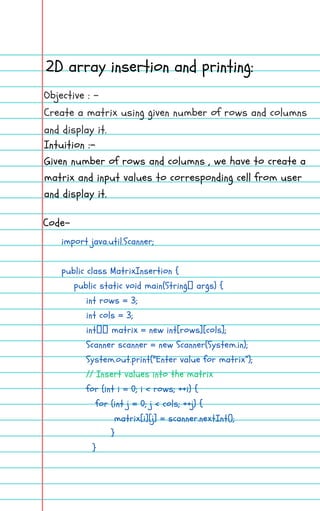 2D array insertion and printing:
Objective : -
Create a matrix using given number of rows and columns
and display it.
Intuition :-
Given number of rows and columns , we have to create a
matrix and input values to corresponding cell from user
and display it.
Code-
import java.util.Scanner;
public class MatrixInsertion {
public static void main(String[] args) {
int rows = 3;
int cols = 3;
int[][] matrix = new int[rows][cols];
Scanner scanner = new Scanner(System.in);
System.out.print("Enter value for matrix");
// Insert values into the matrix
for (int i = 0; i < rows; ++i) {
for (int j = 0; j < cols; ++j) {
matrix[i][j] = scanner.nextInt();
}
}